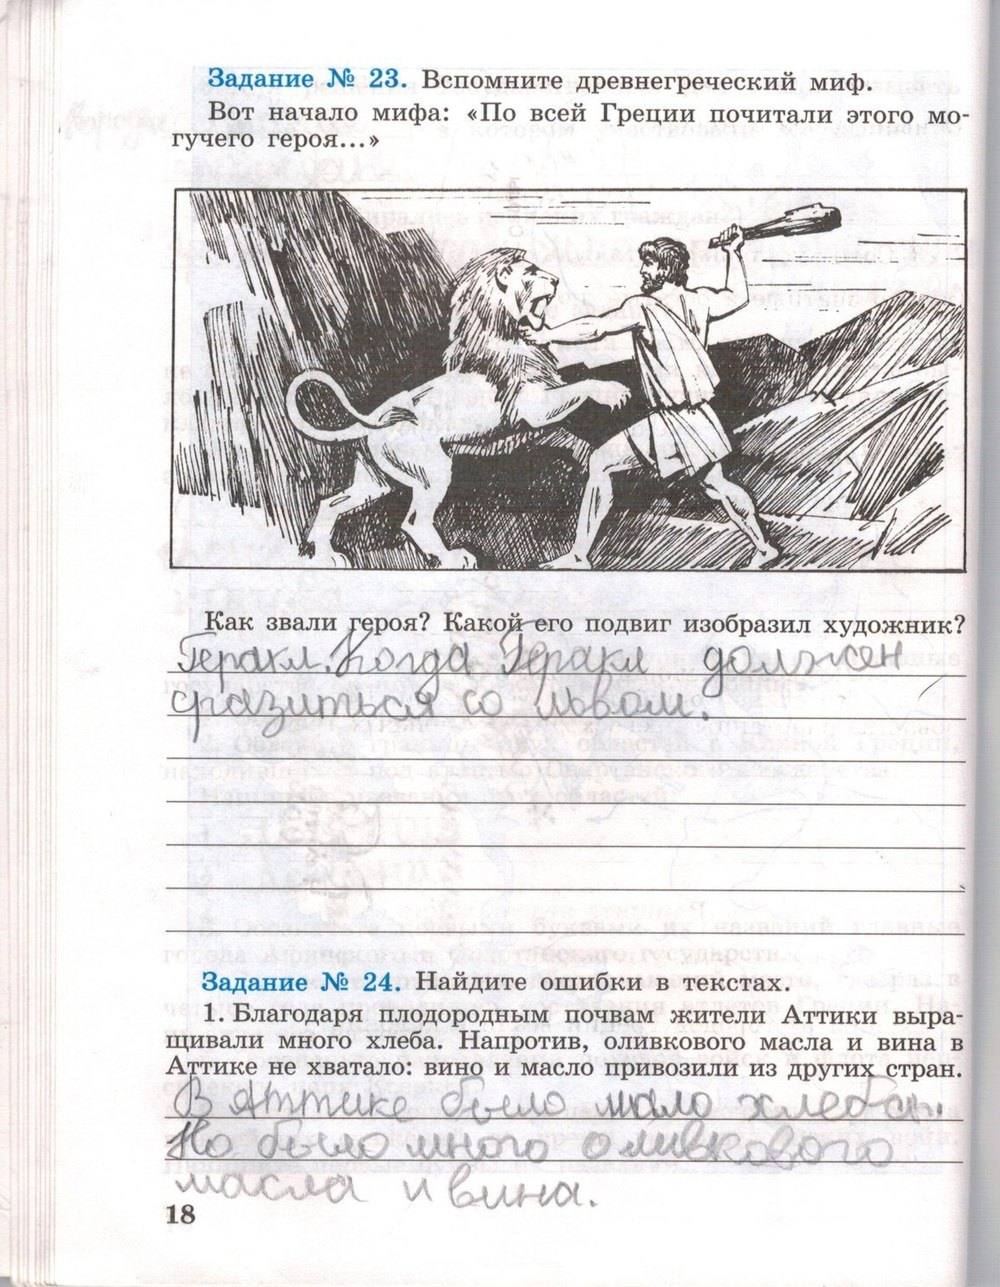 Задание № 23. Вспомните древнегреческий миф.
Вот начало мифа: «По всей Греции почитали этого мо-
гучего героя...»
Как звали героя? Какой его подвиг изобразил художник?
Геракл. Когда Геракл должен
сразиться со львом.
Задание № 24. Найдите ошибки в текстах.
1. Благодаря плодородным почвам жители Аттики выра-
щивали много хлеба. Напротив, оливкового масла и вина в
Аттике не хватало: вино и масло привозили из других стран.
В Аттике было мало хлеба.
Но было много оливкового
масла и вина.
18